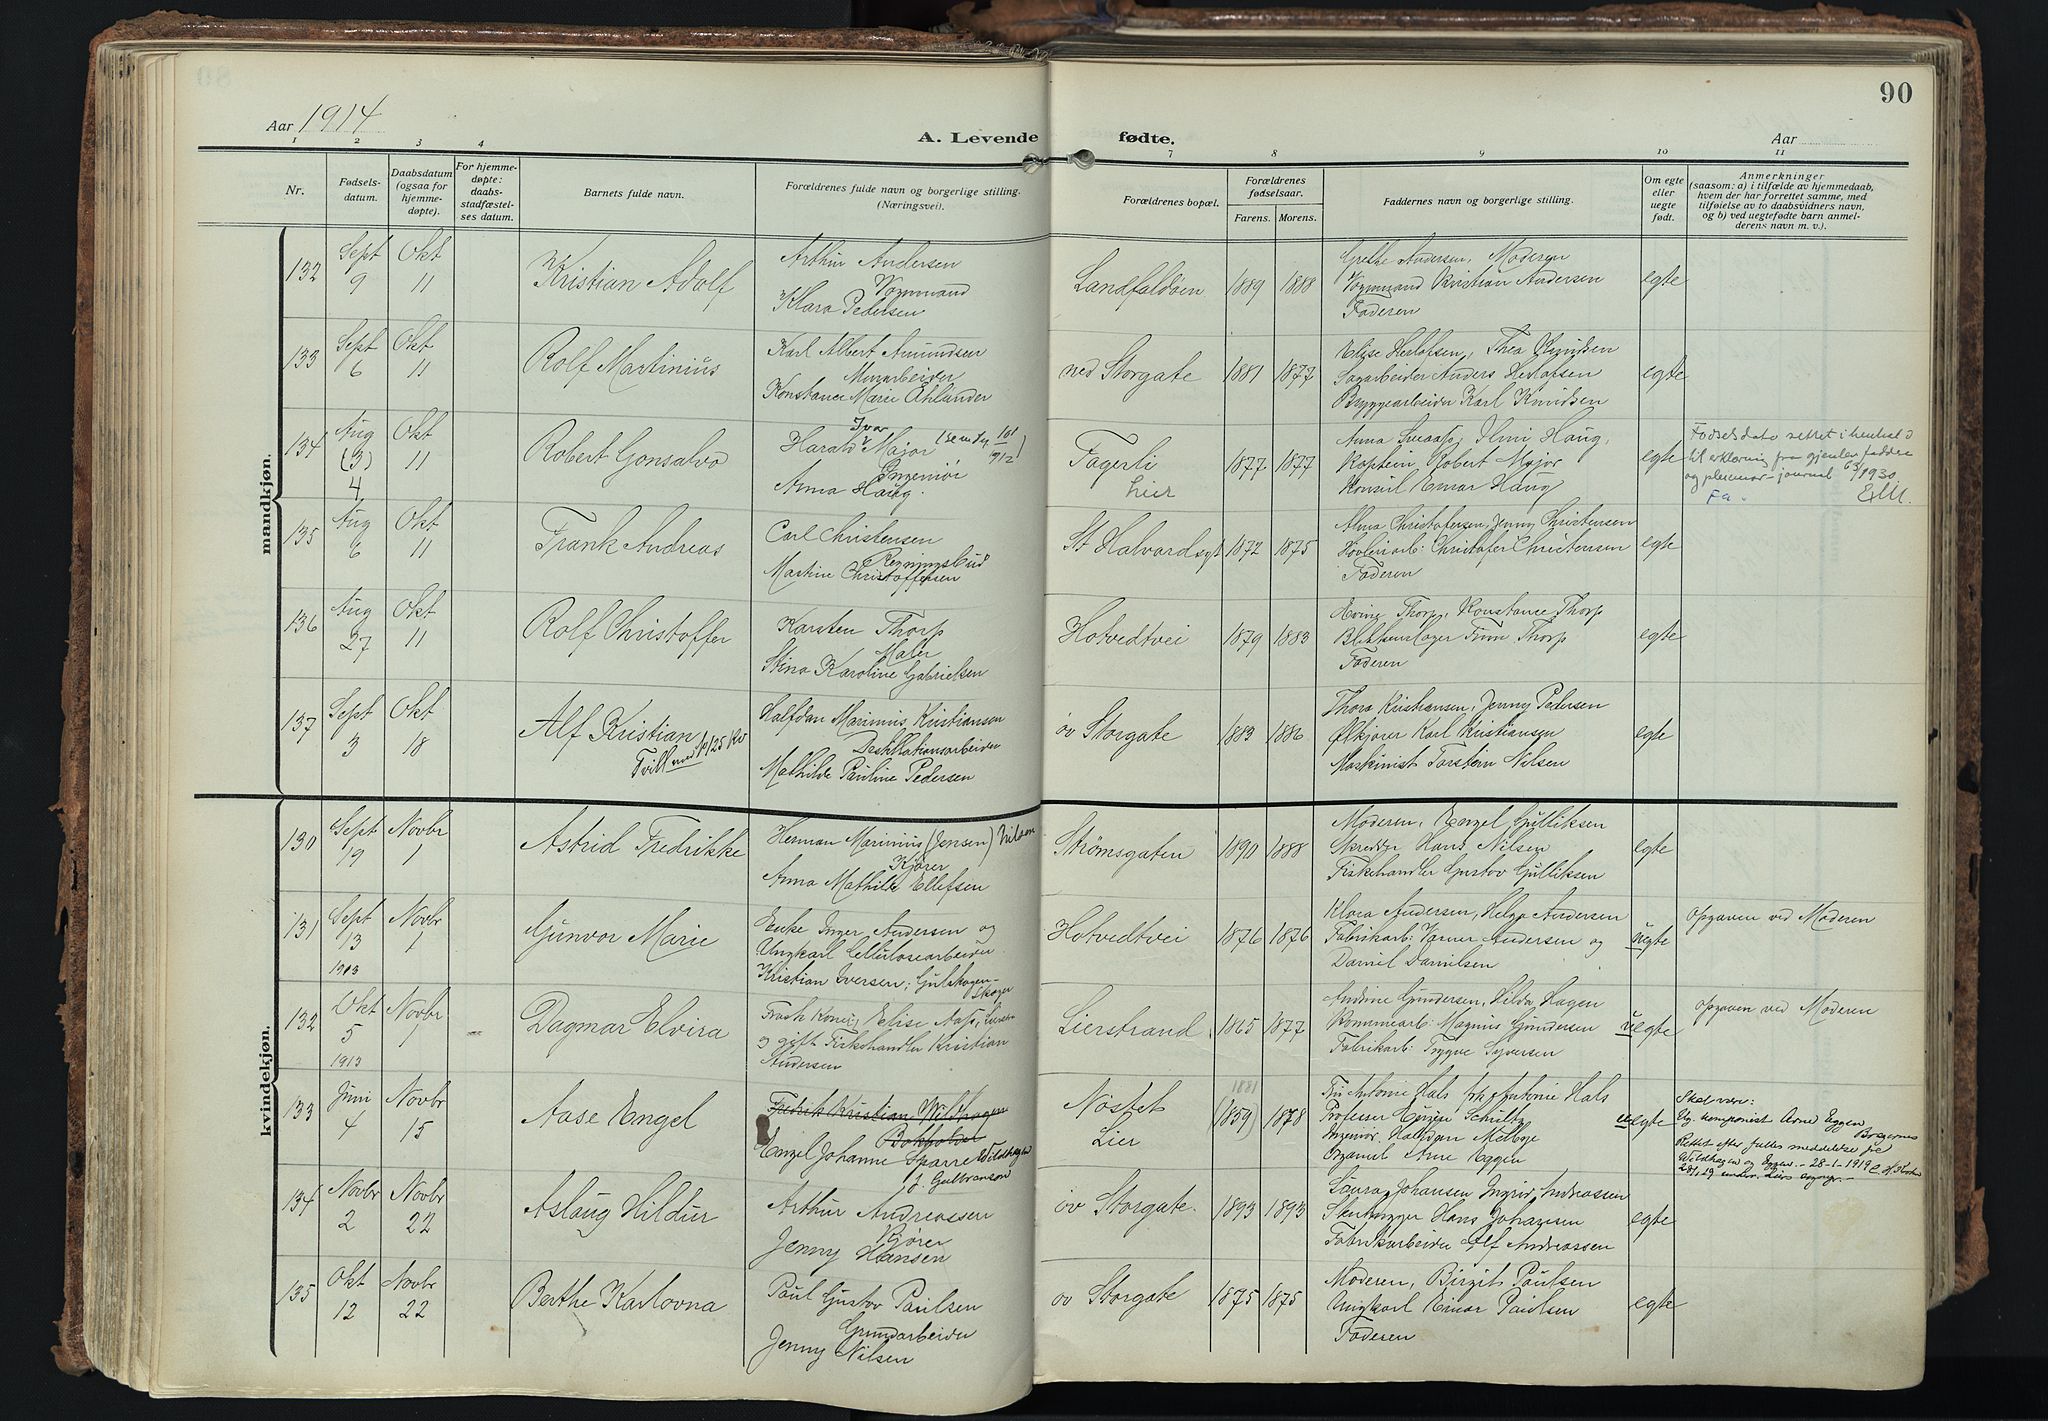 90
Aar 1914
A. Levende fødte.
Aar
1 2 3 4 7 8 9 10 11
Nr.
Fødsels-
datum.
Daabsdatum
(ogsaa for
hjemme-
døpte).
For hjemme-
døpte:
daabs-
stadfæstel-
ses datum.
Barnets fulde navn.
Forældrenes fulde navn og borgerlige stilling.
(Næringsvei).
Forældrenes bopæl.
Forældrenes
fødselsaar.
Farens. Morens.
Faddernes navn og borgerlige stilling.
Om egte
eller
uegte
født.
Anmerkninger
(saasom: a) i tilfælde av hjemmedaab,
hvem der har forrettet samme, med
tilføielse av to daabsvidners navn,
og b) ved uegtefødte barn anmel-
derens navn m. v.).
mandkjøn.
132 Sept 9 Okt 11 Kristian Adolf
Arthur Andersen
Vognmand
Klara Pedersen
Landfaldøen 1889 1888
Grethe Andersen, Moderen
Vognmand Kristian Andersen
Faderen
egte
133 Sept 6 Okt 11 Rolf Martinius
Karl Albert Amundsen
Murarbeider
Konstance Marie Ahlander
ned Storgate 1881 1877
Elise Herlofsen, Thea Knudsen
Sagarbeider Anders Herlofsen
Bryggearbeider Karl Knudsen
egte
134 Aug (3) 4 Okt 11 Robert Gonsalvo
Ivar
Harald Major
Ingeniør
Anna Haug.
Fagerli
Lier
1877 1877
Anna Svaap, Ilmi Haug,
Kaptein Robert Major
Konsul Einar Haug
egte
Fødselsdato rettet i henhold
til erklæring fra gjenlev. fadder
135 Aug 6 Okt 11 Frank Andreas
Carl Christensen
Regningsbud
Martine Christoffersen
St Halvardsgt 1872 1875
Alma Christofersen, Jenny Christensen
Høvleriarb: Christofer Christensen
Faderen
egte
136 Aug 27 Okt 11 Rolf Christoffer
Karsten Thorp
Maler
Stina Karoline Gabrielsen
Hotvedtvei 1879 1883
Thorp, Konstance Thorp
Blikkenslager Finn Thorp
Faderen
egte
137 Sept 3 Okt 18 Alf Kristian
Tvill med № 125 Kv
Halfdan Marinius Kristiansen
Destillationsarbeider
Mathilde Pauline Pedersen
øv Storgate 1883 1886
Thora Kristiansen, Jenny Pedersen
Ølkjører Karl Kristiansen
Maskinist Torstein Nilsen
egte
kvindekjøn.
130 Sept 19 Novbr 1 Astrid Fredrikke
Herman Marinius (Jensen) Nilsen
Kjører
Anna Mathilde Ellefsen
Strømsgaten 1890 1888
Moderen, Engel Gulliksen
Skrædder Hans Nilsen
Fiskehandler Gustav Gulliksen
egte
131 Sept 13 1913 Novbr 1 Gunvor Marie
Enke Inger Andersen og
Ungkarl Cellulosearbeider
Kristian Iversen; Gulskogen
Skoger
Hotvedtvei 1876 1876
Klara Andersen, Helga Andersen
Fabrikarb: Varner Andersen og
Daniel Danielsen
uegte
Opgaven ved Moderen
132 Okt 5 1913 Novbr 1 Dagmar Elvira
Frask. Kone, Elise Aas,
og gift Fiskehandler Kristian
Andersen
Lierstrand 1865 1877
Andrine Gundersen, Hilda Hagen
Kommuearb: Magnus Gundersen
Fabrikarb: Trygve Syversen
uegte
Opgaven ved Moderen
133 Juni 4 Novbr 15 Aase Engel
Fredrik Kristian Wildhagen
Bokholder
Engel Johanne Sparre Wildhagen
f. Gulbranson
Nøstet
Lier
1881
(1859) 1878
Antonie Hals
Professor Schultz
Ingeniør Halfdan Melbye
Organist Arne Eggen
uegte
Skal være:
komponist Arne Eggen
Rettet efter fælles meddelelse fra
Wildhagen og Eggen. - 28-1-1919
134 Novbr 2 Novbr 22 Aslaug Hildur
Arthur Andreassen
Kjører
Jenny Hansen
øv Storgate. 1893 1893
Laura Johansen, Ingrid Andreassen
Hans Johansen
Fabrikarbeider Alf Andreassen
egte
135 Okt 12 Novbr 22 Berthe Karlovna
Paul Gustav Paulsen
Grundarbeider
Jenny Nilsen
øv Storgate 1875 1875
Moderen, Birgit Paulsen
Ungkarl Einar Paulsen
Faderen
egte